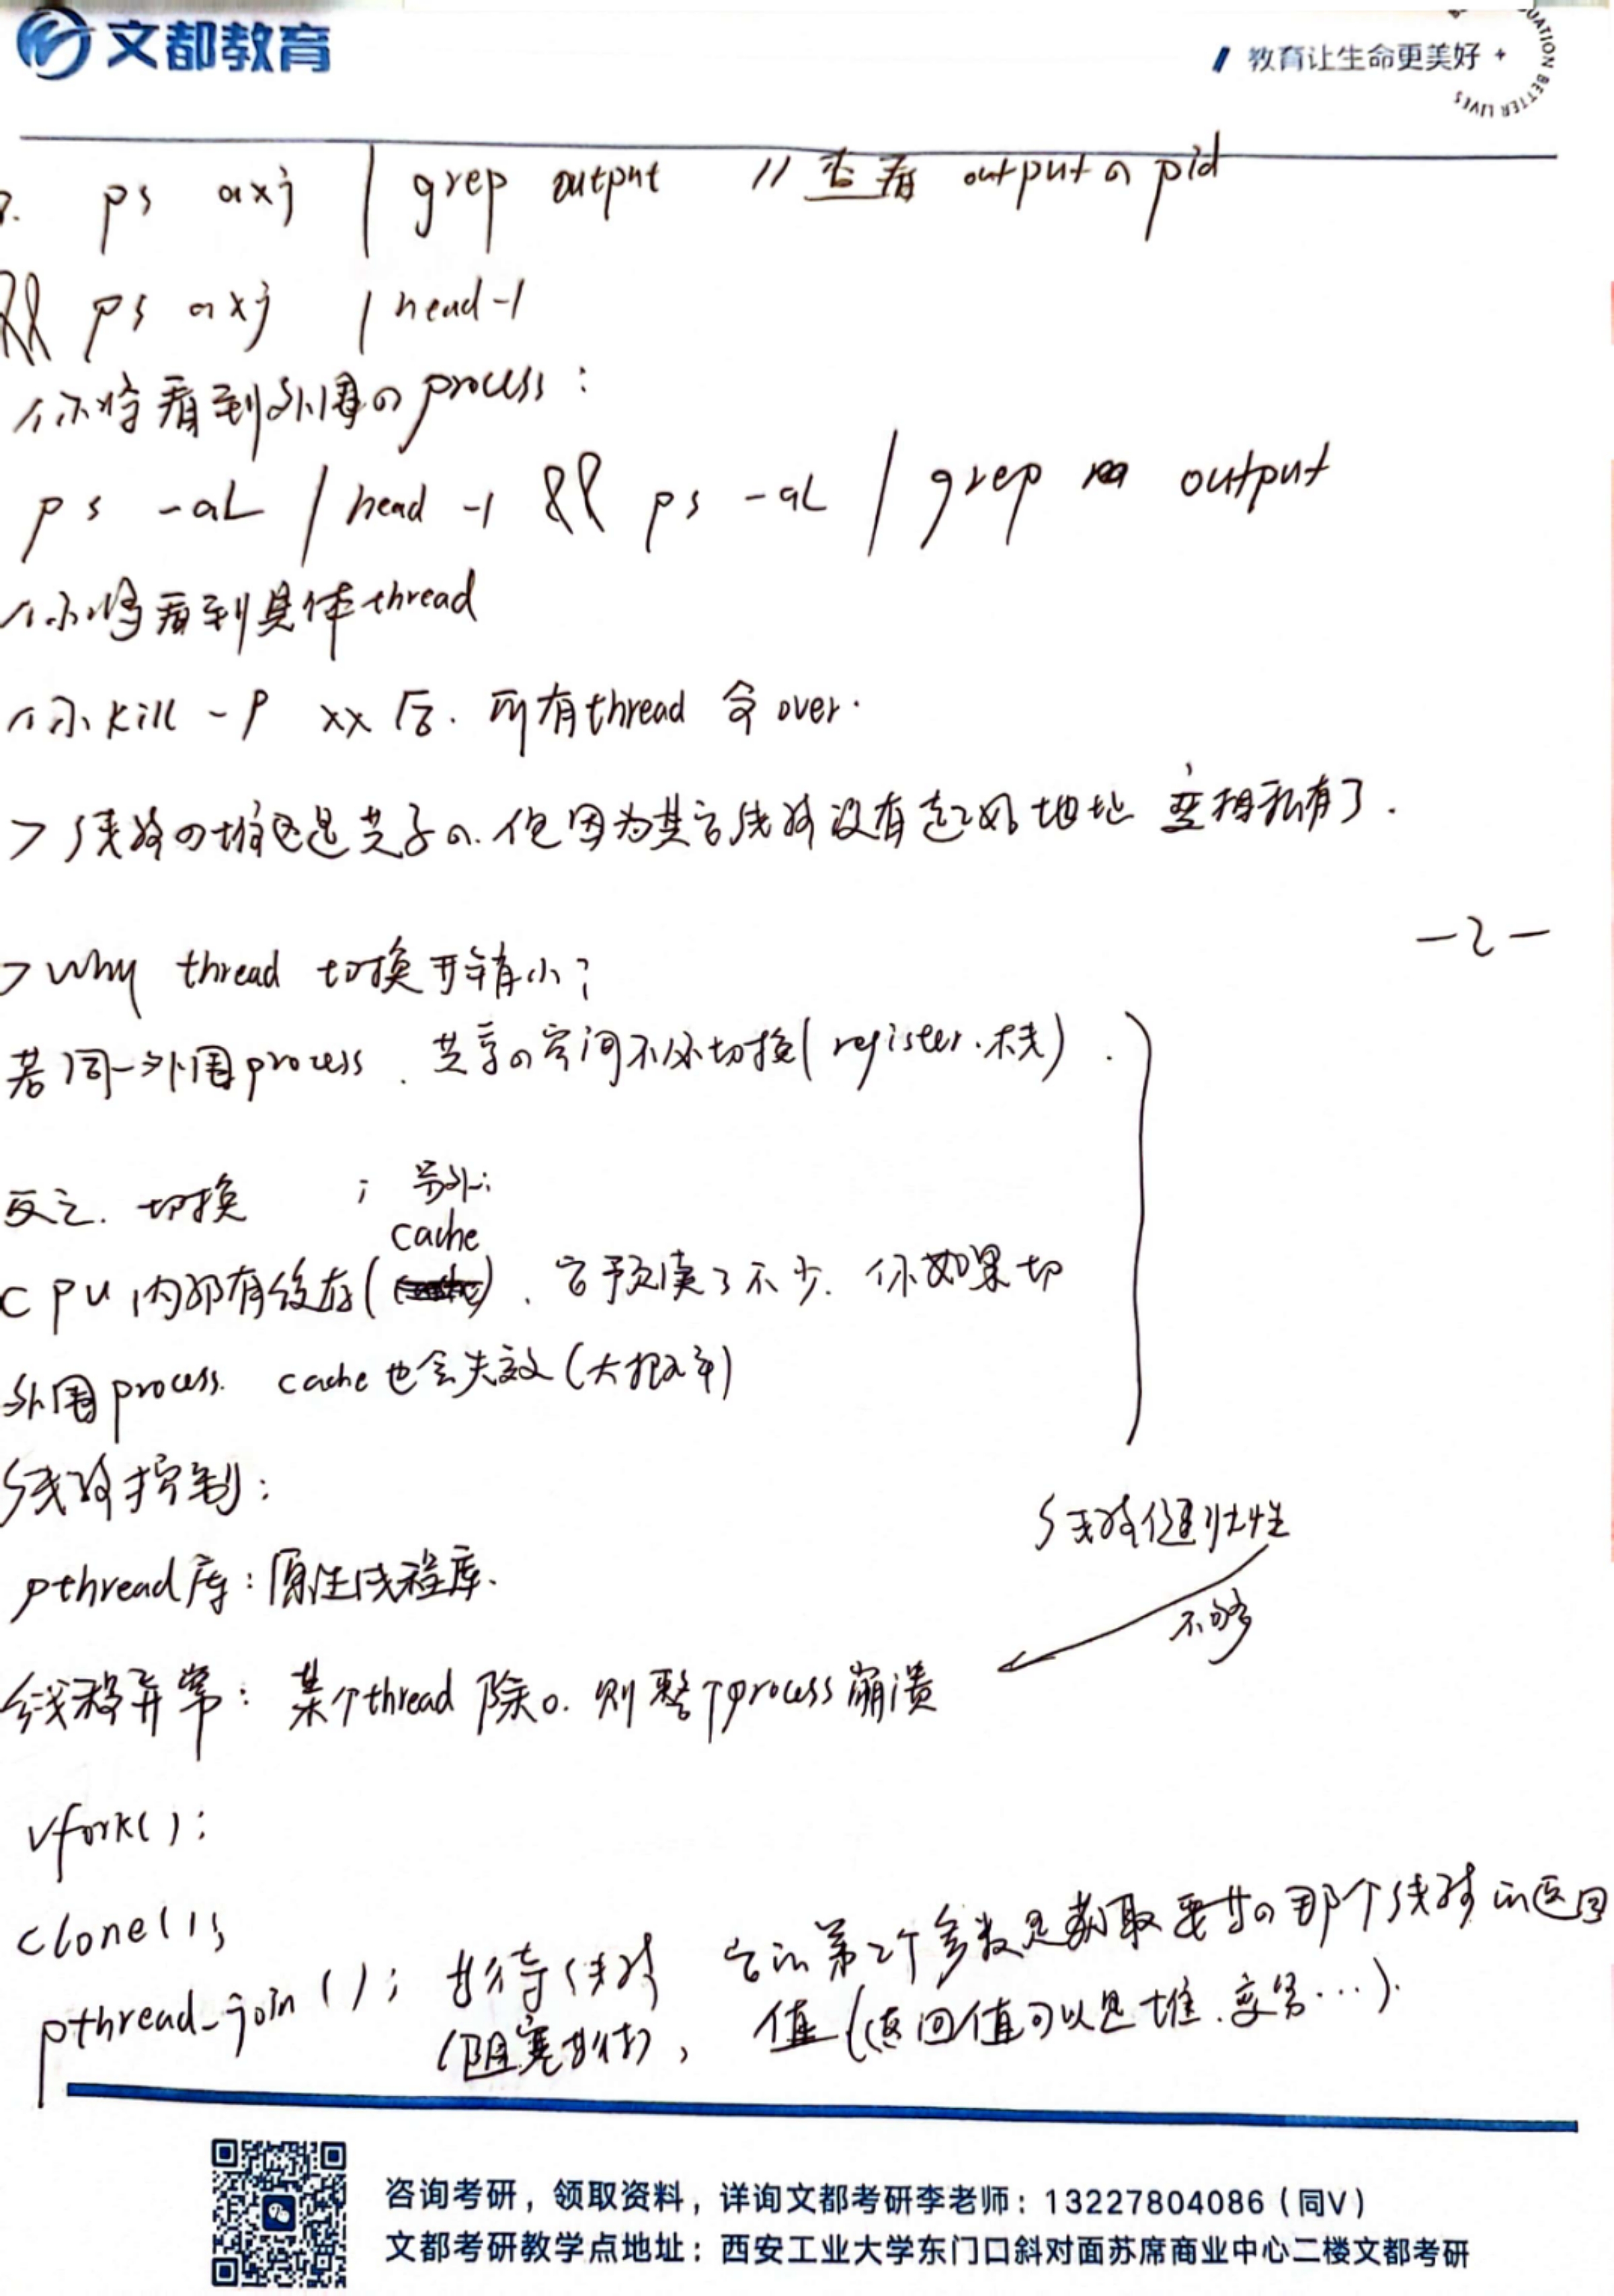 文都教育
教育让生命更美好
UATION BETTER LIVES
ps axj | grep output // 查看 output の pid
&& ps axj | head -1
你将看到外围の process:
ps -aL | head -1 && ps -aL | grep output
你将看到具体thread
你 kill -9 xx 后. 所有thread 会 over.
> 线程の堆区是共享の. 但因为其它线程没有起始地址 变相私有了.
-2-
> why thread 切换开销小?
若同一外围process. 共享の空间不必切换(register.栈).
反之. 切换 ; 另外:
cache
CPU 内部有缓存( ). 它预读了不少. 你如果切
外围process. cache 也会失效(大概率)
线程控制:
线程健壮性
pthread库: 原生线程库.
不够
线程异常: 某个thread 除0. 则整个process崩溃
vfork():
clone();
pthread_join(); 等待线程 它的第2个参数是获取要等の那个线程的返回
(阻塞等待), 值(返回值可以是堆.变量...).
咨询考研，领取资料，详询文都考研李老师：13227804086（同V）
文都考研教学点地址：西安工业大学东门口斜对面苏席商业中心二楼文都考研